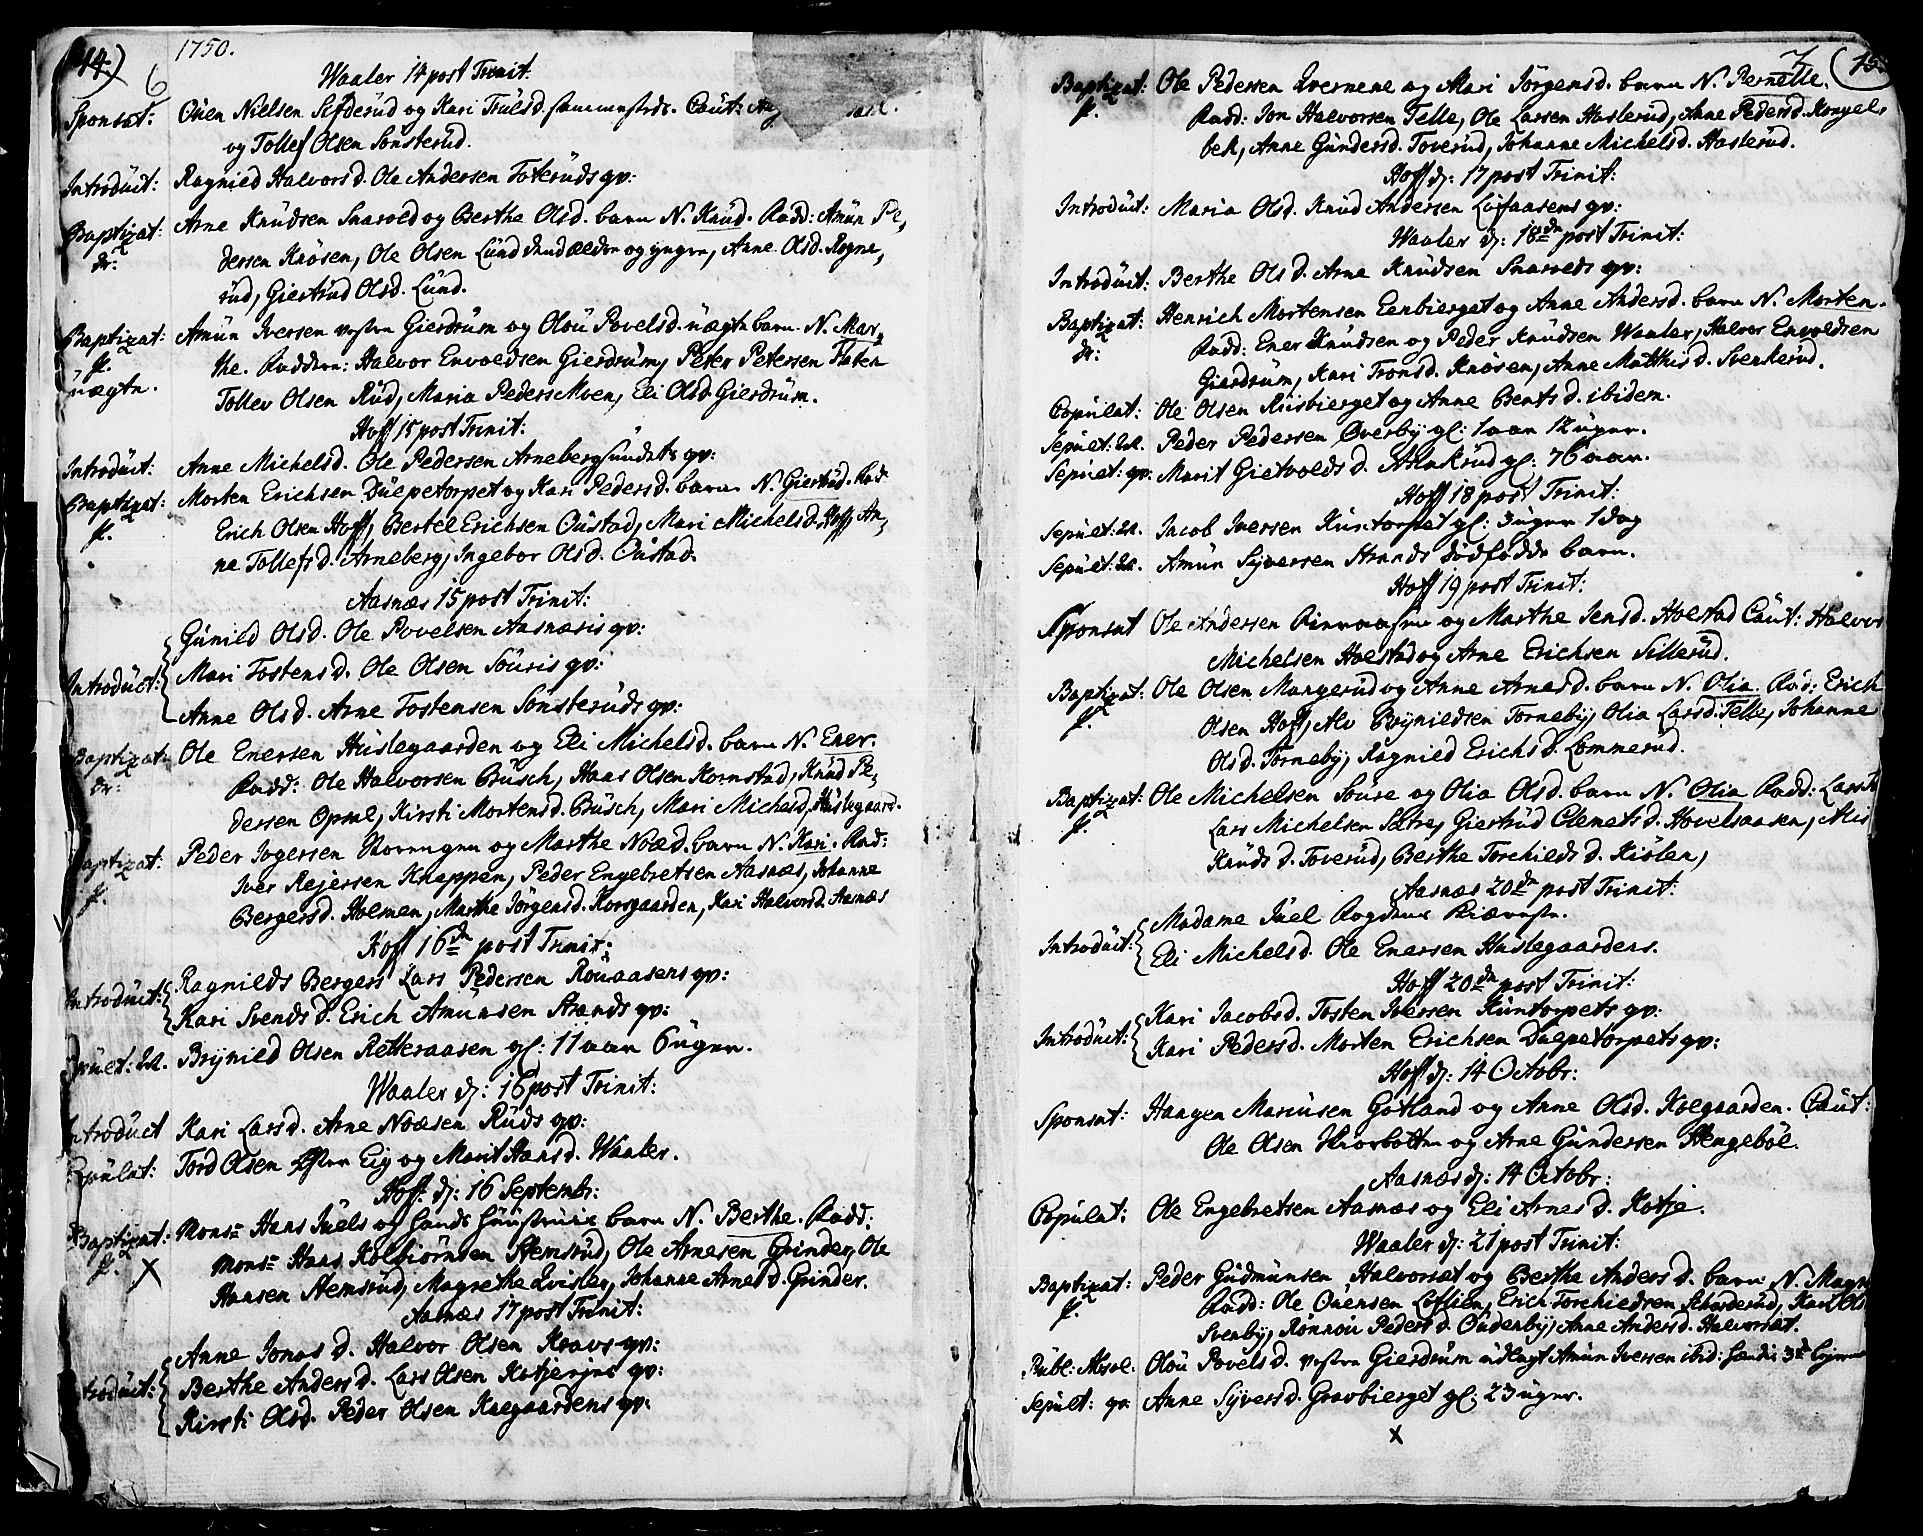 14.)
6
1750.
Waaler 14 post Trinit:
Sponsat: Ouen Nielsen Sefderud og Kari Trulsd. sammesteds. Caut:
og Tollef Olsen Sønsterud.
Introduit: Ragnied Halvorsd. Ole Andersen Toterudsqv:
Baptizat: Arne Knudsen Snarved og Berthe Olsd. barn N. Knud. Fadd: Amun Pe,
dr: dersen Knøsen, Ole Olsen Lund dend ældre og yngre, Anne Olsd. Rogne,
rud, Giertrud Olsd. Lund.
Baptizat: Amun Iversen vestre Gierdrum og Olou Povelsd. uægte barn N. Mar,
p. the. Faddere: Halvor Envoldsen Gierdrum, Peter Petersen Flaten
uægte. Tollev Olsen Rud, Maria Peders Moen, Eli Olsd. Gierdrum.
Hoff 15 post Trinit:
Introduit: Anne Michelsd. Ole Pedersen Arnebergsundets qv:
Baptizat: Morten Erichsen Dulpetorpet og Kari Pedersd. barn N. Giertrud. Fad:
p. Erich Olsen Hoff, Bertel Erichsen Oustad, Mari Michelsd. Hoff, An,
ne Tollefsd. Arneberg, Ingebor Olsd. Oustad.
Aasnæs 15 post Trinit:
Gunild Olsd. Ole Povelsen Aasnæsis qv:
Introduct: Mari Tostensd. Ole Olsen Souris qv:
Anne Olsd. Arne Tostensen Sønsteruds qv:
Baptizat: Ole Enersen Huslegaarden og Eli Michelsd. barn N. Ener.
dr: Fadd: Ole Halvorsen Busch, Hans Olsen Kornstad, Knud Pe,
dersen Opsal, Kirsti Mortensd. Busch, Mari Michelsd. Huslegaard.
Baptizat: Peder Jogersen Norengen og Marthe Noæd. barn N. Kari. Fad:
p. Iver Rejersen Knappen, Peder Engebretsen Aasnæs, Johanne
Bergersd. Holmen, Marthe Jørgensd. Korsgaarden, Kari Halvorsd. Aasnæs
Hoff 16de post Trinit:
Introduit: Ragnilds Bergers Lars Pedersen Rouaasens qv:
Kari Svendsd. Erich Amunsen Strands qv:
Brynild Olsen Retteraasen gl: 11 aar 6 uger.
Waaler d: 16 post Trinit:
Introduct Kari Larsd. Arne Noæsen Ruds qv:
Copulat: Tord Olsen Østre Eig og Marit Hansd. Waaler.
Hoff d: 16 Septembr:
Baptizat: Monsr Hans Juels og hands hustrues barn N. Berthe. Fadd:
p. X Monsr Hans Kolbiørnsen Stemsrud, Ole Arnesen Grinder, Ole
Hansen Stemsrud, Magrethe Qvisler, Johanne Arnesd. Grinder.
Aasnæs 17 post Trinit:
Anne Jonasd. Halvor Olsen Kravs qv:
Introduit: Berthe Andersd. Lars Olsen Kotjernes qv:
Kirsti Olsd. Peder Olsen Kaegaardens qv:
7 (15.
Baptizat: Ole Pedersen Qvernene og Mari Jørgensd. barn N. Pernelle.
p. Fadd: Jon Halvorsen Telle, Ole Larsen Haslerud, Anne Pedersd. Kongels
bek, Anne Gundersd. Toverud, Johanne Michelsd. Haslerud.
Hoff d: 17 post Trinit:
Introduit: Maria Olsd. Knud Andersen Løfaasens qv:
Waaler d: 18de post Trinit:
Introduit: Berthe Olsd. Arne Knudsen Snarveds qv:
Baptizat: Henrich Mortensen Eenbierget og Anne Andersd. barn N. Morten.
dr: Fadd: Ener Knudsen og Peder Knudsen Waaler, Halvor Envoldsen
Gierdrum, Kari Tronsd. Knøsen, Anne Matthisd. Svenkerud.
Copulat: Ole Olsen Riisbierget og Anne Bentsd. ibidem.
Sepult: Peder Pedersen Øverby gl: 1 aar 12 uger.
Sepult: qv: Marit Gietvoldsd. Aslakrud gl: 76 aar.
Hoff 18 post Trinit:
Sepult: Jacob Iversen Kuntorpet gl: 3 uger 1 dag
Sepult: Amun Syversen Strands dødfødde barn.
Hoff 19 post Trinit:
Sponsat Ole Andersen og Marthe Jensd. Holstad Caut: Halvor
Michelsen Holstad og Arne Erichsen Sillerud.
Baptizat: Ole Olsen Mangerud og Anne Arnesd. barn N. Olia. Fad: Erich
p. Olsen Hoff, Alv Brynildsen Torneby, Olia Larsd. Telle, Johanne
Olsd. Torneby, Ragnild Erichsd. Lommerud.
Baptizat: Ole Michelsen Soure og Olia Olsd. barn N. Olia Fadd: Lars
p. Lars Michelsen Sætre, Giertrud Clemetsd. Hovelsaasen, Alis
Knudsd. Toverud, Berthe Torchildsd. Kiølen,
Aasnæs 20de post Trinit:
Introduit: Madame Juel Fogdens Kiæreste.
Eli Michelsd. Ole Enersen Huslegaardens.
Hoff 20de post Trinit:
Introduit: Kari Jacobsd. Tosten Iversen Kuntorpets qv:
Kari Pedersd. Morten Erichsen Dulpetorpets qv:
Hoff d: 14 Octobr:
Sponsat: Haagen Mariusen Gotland og Anne Olsd. Kolgaarden. Caut:
Ole Olsen Skiorbotten og Arne Gundersen Stengebøl.
Aasnæs d: 14 Octobr:
Copulat: Ole Engebretsen Aasnæs og Eli Arnesd. Kotje.
Waaler d: 21 post Trinit:
Baptizat: Peder Gudmunsen Halvorset og Berthe Andersd. barn N. Magn
p. Fadd: Ole Ouensen Løflien, Erich Torchiedsen Schasderud, Kari Ols
Svenby, Rønnou Pedersd. Oudenby, Anne Andersd. Halvorset.
Publ: Absol: Olou Povelsd. vestre Gierdrum udlagt Amun Iversen ibid:
Sepult: qv. Anne Syversd. Gravbierget gl: 23 uger.
X